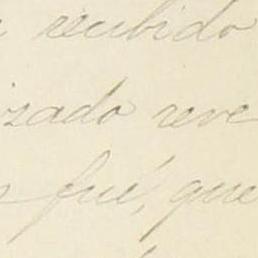 recibido
izado reve
fué, que